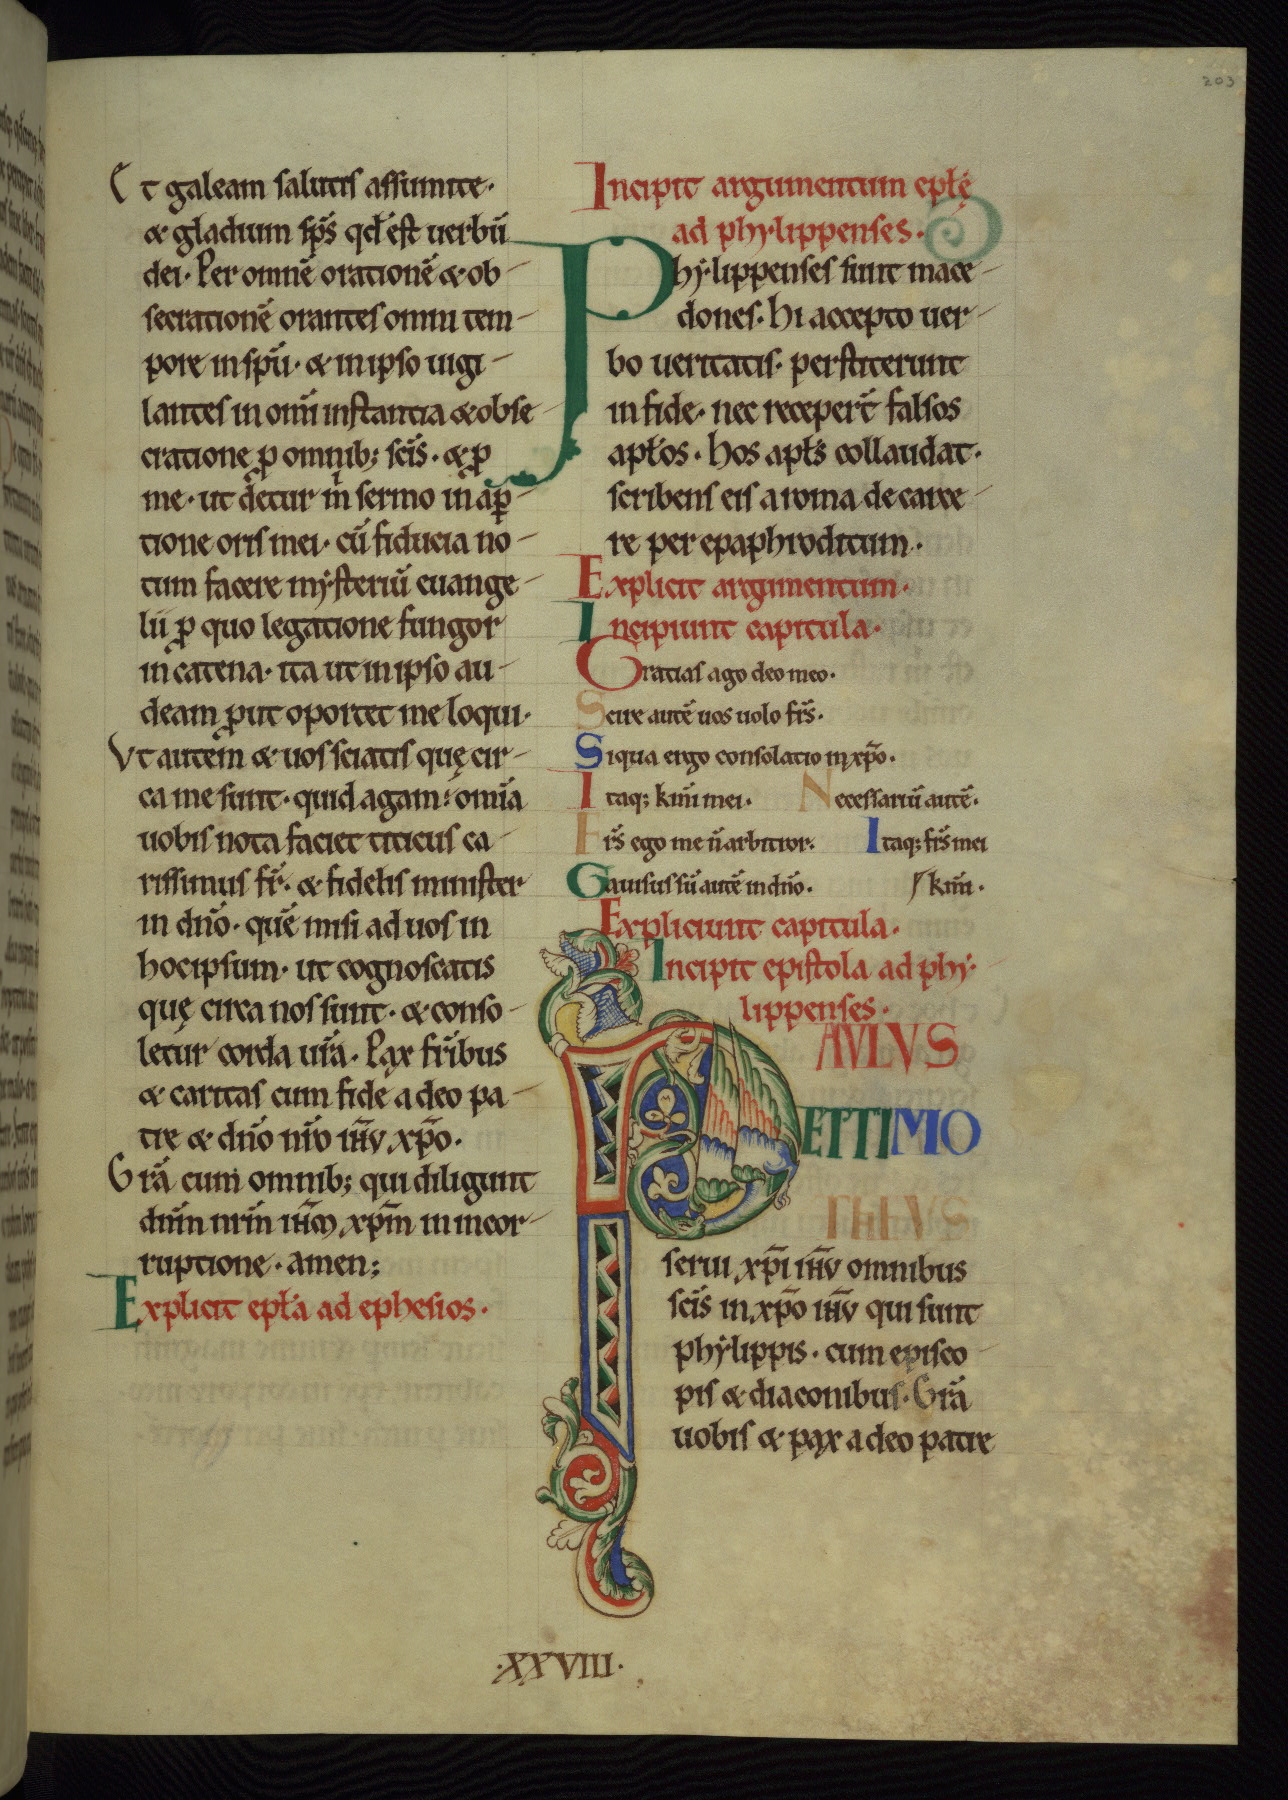 203
Et galeam salutis assumite·
& gladium sp̄s qd̄ est uerbū
dei· Per omnē orationē & ob
secrationē orantes omni tem
pore in sp̄u· & in ipso uigi
lantes in om̄i instantia & obse
cratione ꝑ omnib; sc̄is· & ꝑ
me· ut detur m̄ sermo in aꝑ
tione oris mei· cū fiducia no
tum facere mẏsteriū euange
lii ꝑ quo legatione fungor
in catena· ita ut in ipso au
deam prout oportet me loqui·
Vt autem & uos sciatis quę cir
ca me sunt· quid agam: om̄ia
uobis nota faciet titicus ca
rissimus fr̄· & fidelis minister
in dn̄o· quē misi ad uos in
hoc ipsum· ut cognoscatis
quę circa nos sunt· & conso
letur corda ur̄a· Pax fr̄ibus
& caritas cum fide a deo pa
tre & dn̄o nr̄o ih̄u xp̄o·
Gr̄a cum omnib; qui diligunt
dn̄m nr̄m ih̄m xp̄m in incor
ruptione· amen;
Explicit epl̄a ad ephesios·
Incipit argumentum epl̄ę
ad phẏlippenses·
Phẏlippenses sunt mace
dones· hi accepto uer
bo ueritatis· perstiterunt
in fide· nec receper̄t falsos
apl̄os· hos apl̄s collaudat·
scribens eis a roma de carce
re per epaphroditum·
Explicit argumentum·
Incipiunt capitula·
Gratias ago deo meo·
Scire autē uos uolo fr̄s·
Siqua ergo consolatio in xp̄o·
Itaq; km̄i mei· Necessariū autē·
Fr̄s ego me n̄ arbitror· Itaq; fr̄s mei
Gauisus sū autē in dn̄o· km̄i·
Expliciunt capitula·
Incipit epistola ad phẏ
lippenses·
PAVLVS
ET TIMO
THEVS
serui xp̄i ih̄u omnibus
sc̄is in xp̄o ih̄u qui sunt
phẏlippis· cum episco
pis & diaconibus· Gr̄a
uobis & pax a deo patre
·XXVIII·